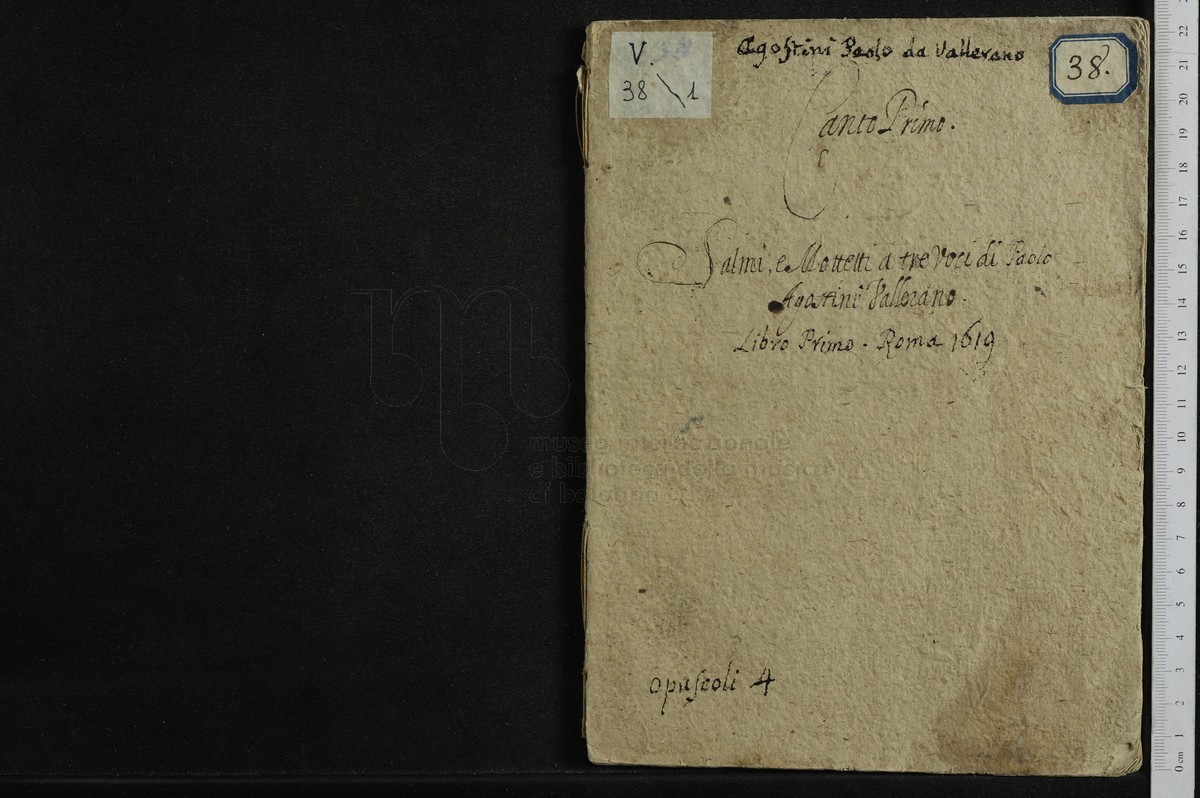 V.
38 \ 1
Agostini Paolo da Vallerano
38.
Canto Primo.
Salmi, e Mottetti à tre Voci di Paolo
Agostini Vallerano.
Libro Primo - Roma 1619
opuscoli 4
museo internazionale
e biblioteca della musica
di bologna
22
21
20
19
18
17
16
15
14
13
12
11
10
9
8
7
6
5
4
3
2
1
0 cm